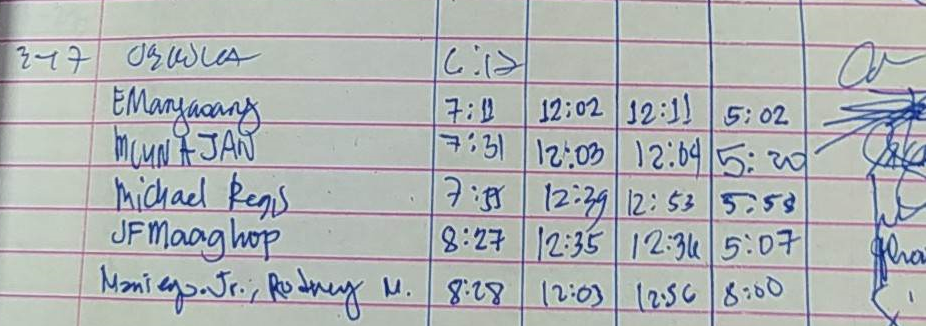 3-17 6:12
EMangaoang 7:11 12:02 12:11 5:02
7:31 12:03 12:04 5:20
Michael Regis 7:55 12:39 12:53 5:53
JFMaaghop 8:27 12:35 12:36 5:07
Maniego Jr., Rodney M. 8:28 12:03 12:56 8:00